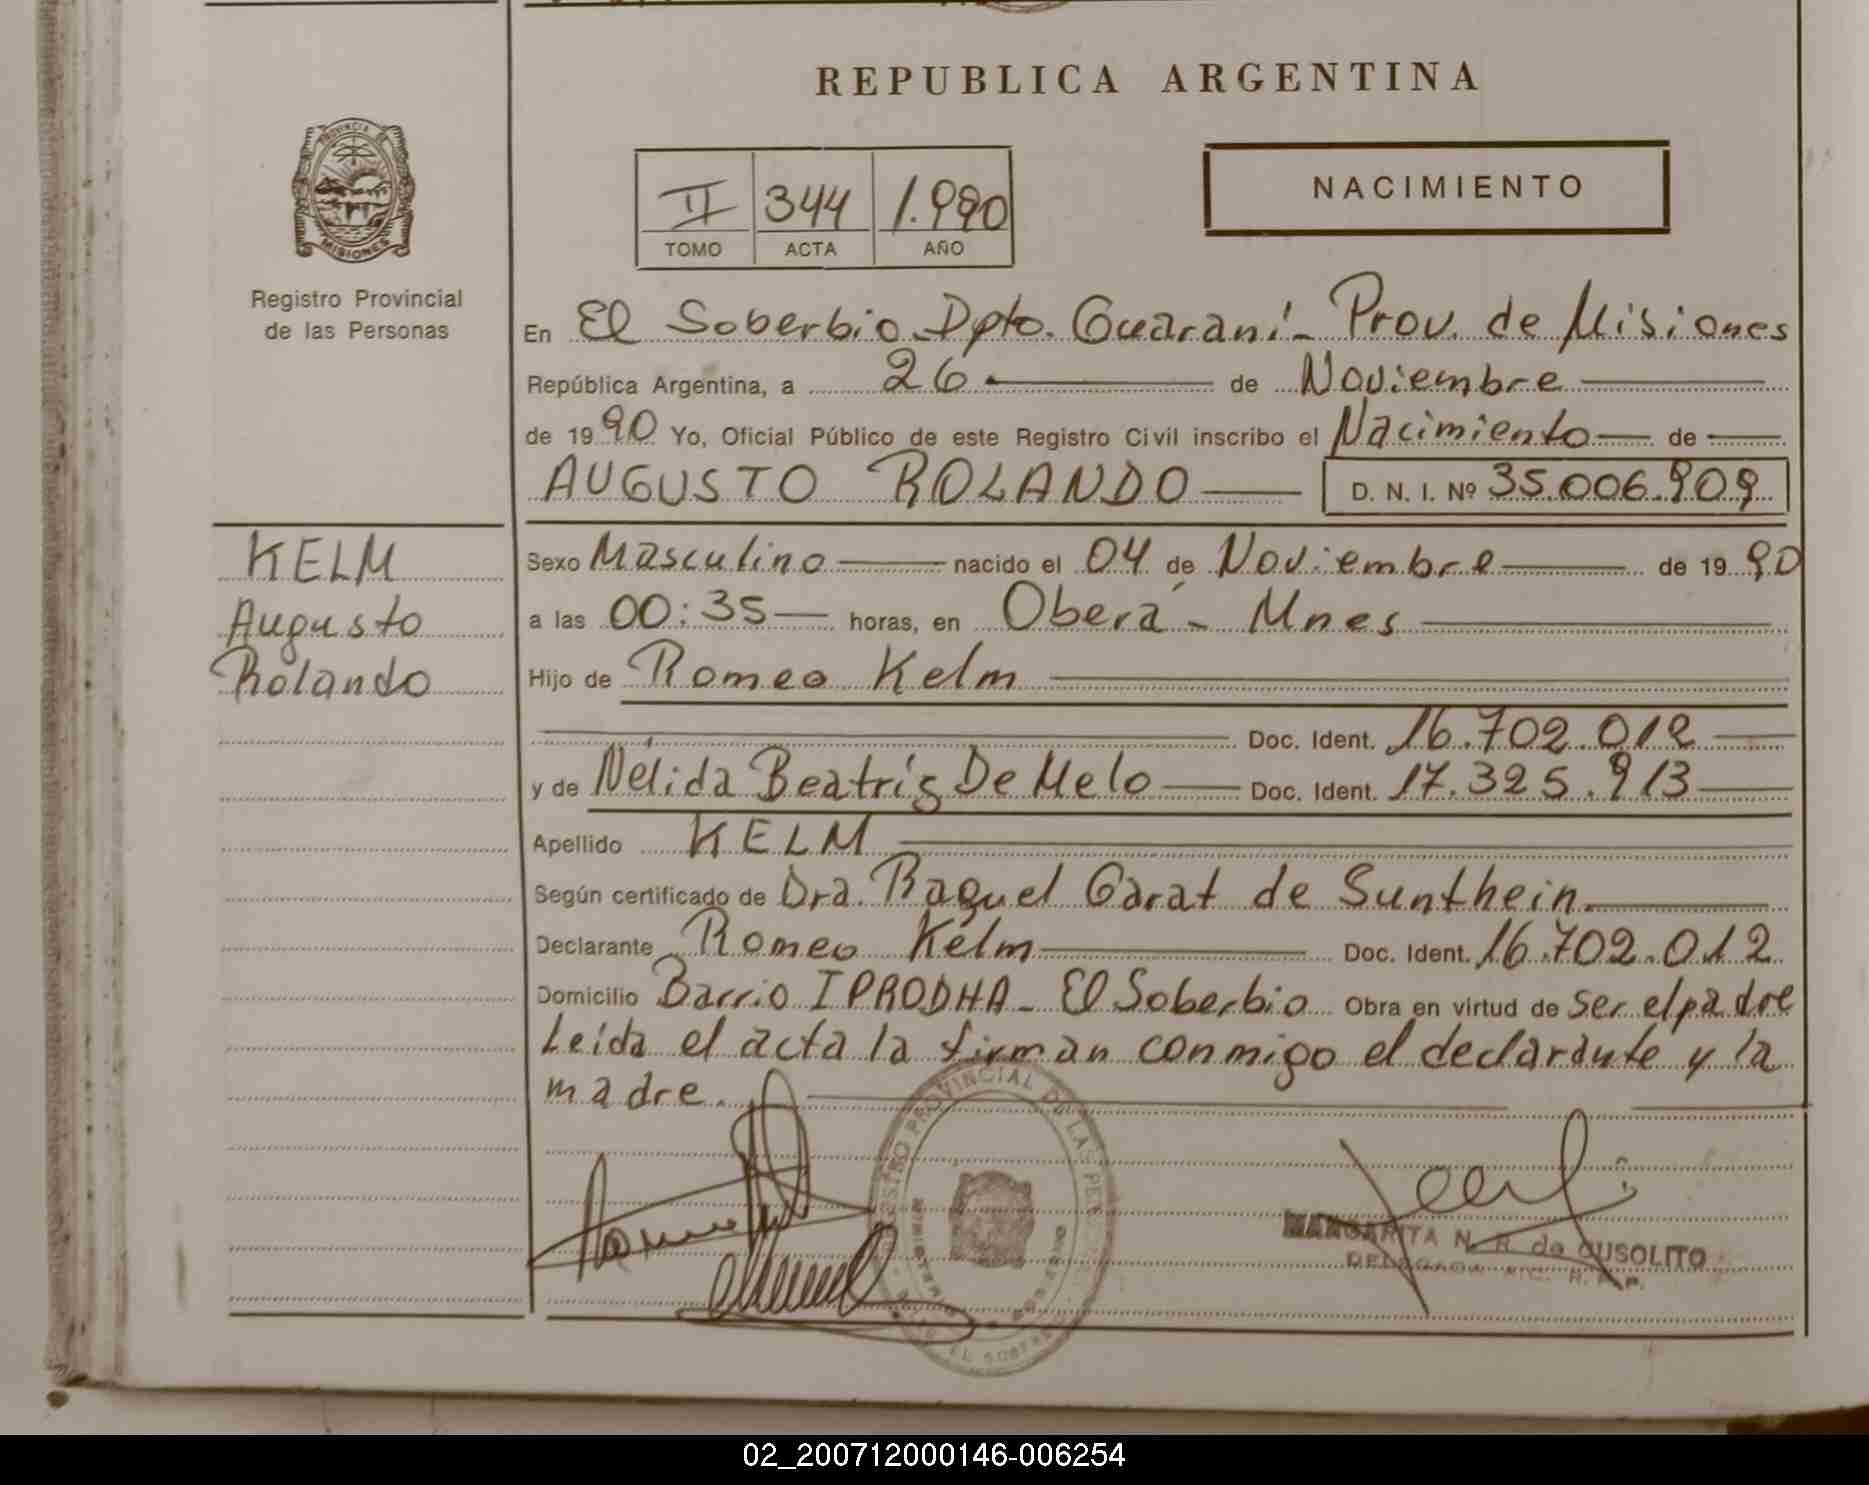 REPUBLICA ARGENTINA
PROVINCIA DE
MISIONES
Registro Provincial
de las Personas
II 344 1.990
TOMO ACTA AÑO
NACIMIENTO
En El Soberbio Dpto. Guaraní - Prov. de Misiones
República Argentina, a 26 de Noviembre
de 1990 Yo, Oficial Público de este Registro Civil inscribo el Nacimiento de
AUGUSTO ROLANDO D. N. I. Nº 35.006.909
KELM
Augusto
Rolando
Sexo Masculino nacido el 04 de Noviembre de 1990
a las 00:35 horas, en Oberá - Mnes
Hijo de Romeo Kelm
Doc. Ident. 16.702.012
y de Nélida Beatríz De Melo Doc. Ident. 17.325.913
Apellido KELM
Según certificado de Dra. Raquel Garat de Sunthein.
Declarante Romeo Kelm Doc. Ident. 16.702.012
Domicilio Barrio IPRODHA - El Soberbio Obra en virtud de ser el padre
Leída el acta la firman conmigo el declarante y la
madre.
PROVINCIAL DE LAS
MARGARITA N. R. de CUSOLITO
02_200712000146-006254